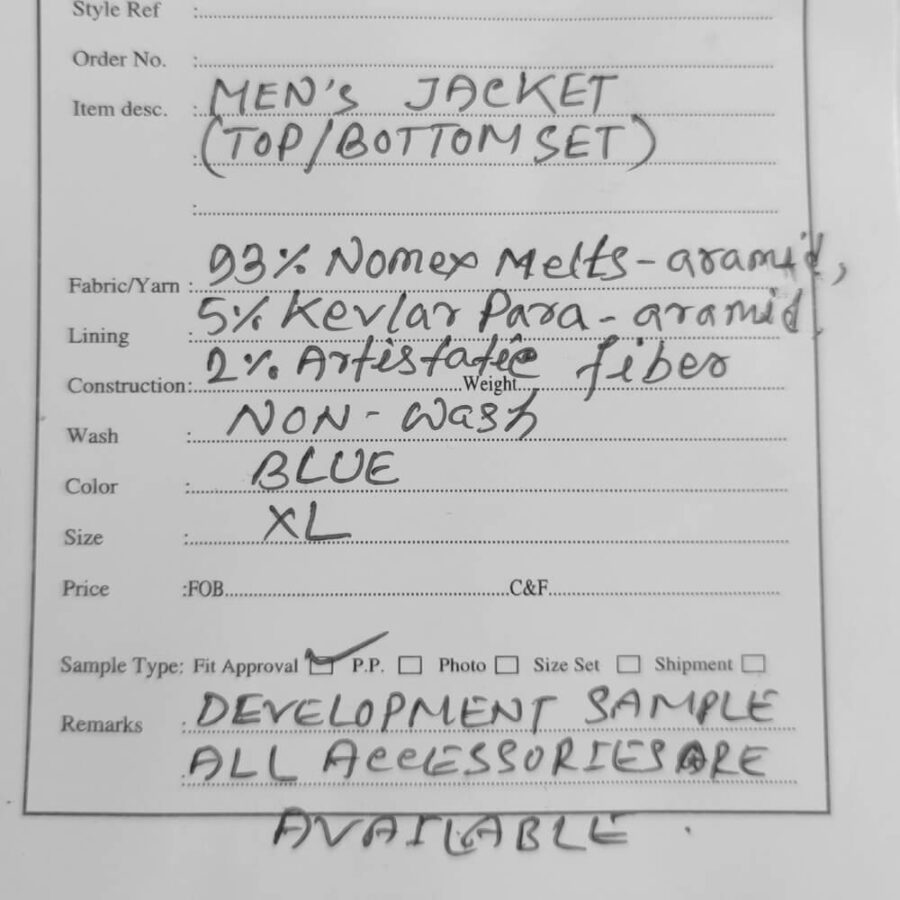 Style Ref :
Order No. :
Item desc. : MEN's JACKET
: (TOP/BOTTOM SET)
:
Fabric/Yarn : 93% Nomex Melts-aramid,
Lining : 5% Kevlar Para-aramid,
Construction: 2% Artistatic fiber Weight
Wash : NON-Wash
Color : BLUE
Size : XL
Price :FOB C&F
Sample Type: Fit Approval ☑ P.P. ☐ Photo ☐ Size Set ☐ Shipment ☐
Remarks : DEVELOPMENT SAMPLE
: ALL ACCESSORIES ARE
AVAILABLE .